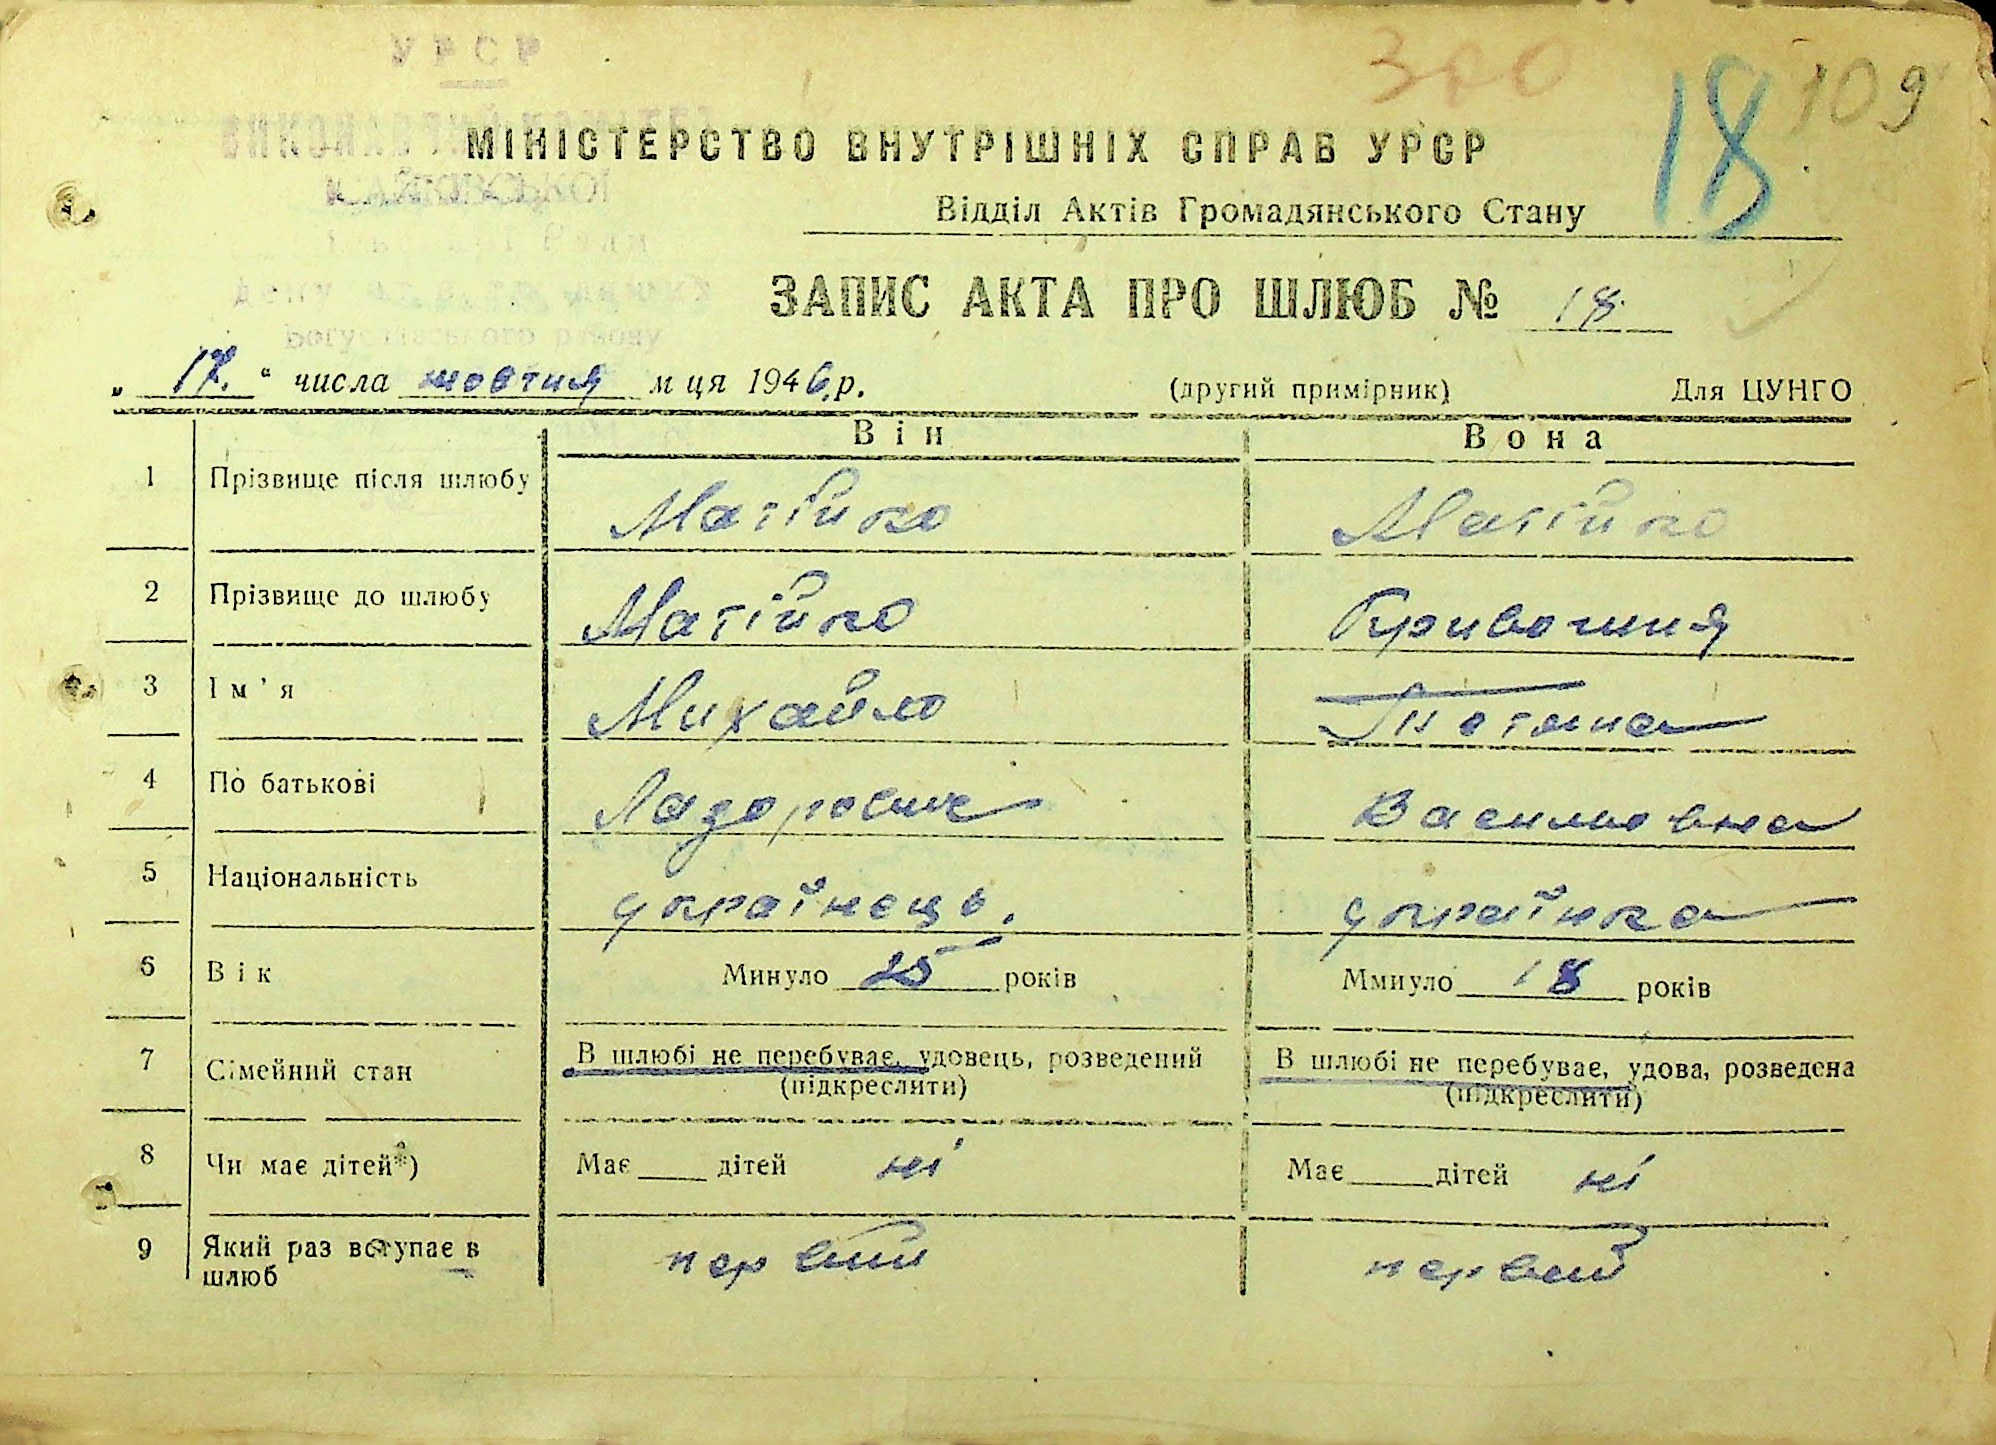 300
18 109
МІНІСТЕРСТВО ВНУТРІШНІХ СПРАВ УРСР
Відділ Актів Громадянського Стану
ЗАПИС АКТА ПРО ШЛЮБ № 18.
„ 17. “ числа жовтня м ця 1946 р. (другий примірник) Для ЦУНГО
Він Вона
1 Прізвище після шлюбу Матійко Матійко
2 Прізвище до шлюбу Матійко Кривошия
3 Ім'я Михайло Тетяна
4 По батькові Василювна
5 Національність українець. українка
6 Вік Минуло 25 років Ммиуло 18 років
7 Сімейний стан В шлюбі не перебуває, удовець, розведений В шлюбі не перебуває, удова, розведена
(підкреслити) (підкреслити)
8 Чи має дітей*) Має ____ дітей ні Має ____ дітей ні
9 Який раз вступає в шлюб первий первий